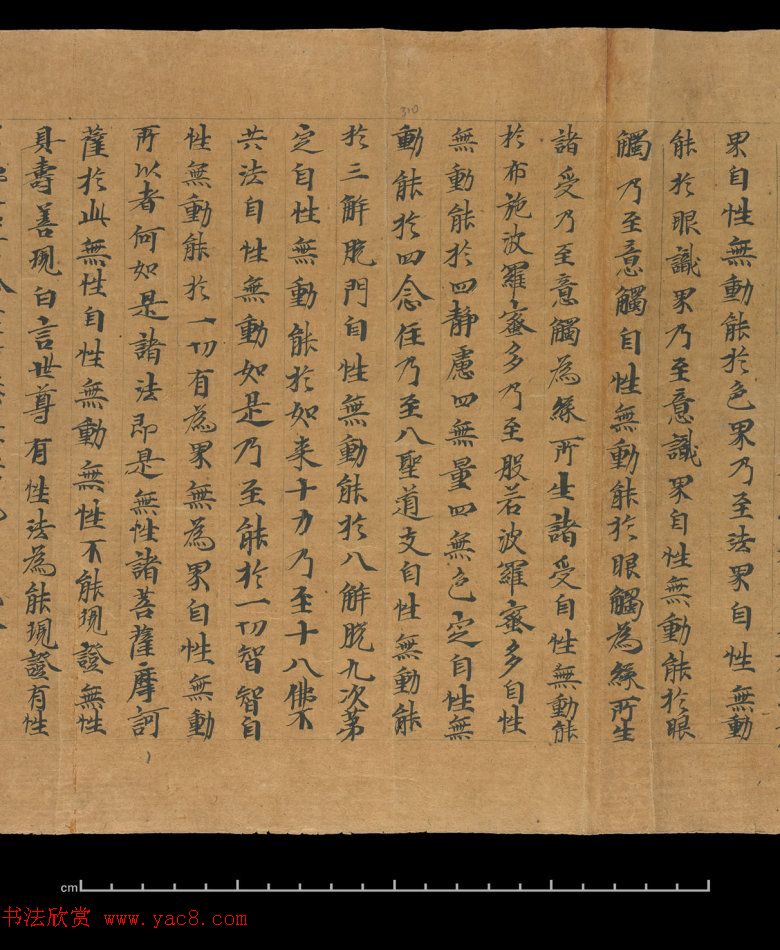 310
界自性無動能於色界乃至法界自性無動
能於眼識界乃至意識界自性無動能於眼
觸乃至意觸自性無動能於眼觸為緣所生
諸受乃至意觸為緣所生諸受自性無動能
於布施波羅蜜多乃至般若波羅蜜多自性
無動能於四靜慮四無量四無色定自性無
動能於四念住乃至八聖道支自性無動能
於三解脫門自性無動能於八解脫九次第
定自性無動能於如來十力乃至十八佛不
共法自性無動如是乃至能於一切智智自
性無動能於一切有為界無為界自性無動
所以者何如是諸法即是無性諸菩薩摩訶
薩於此無性自性無動無性不能現證無性
具壽善現白言世尊有性法為能現證有性
cm
书法欣赏 www.yac8.com